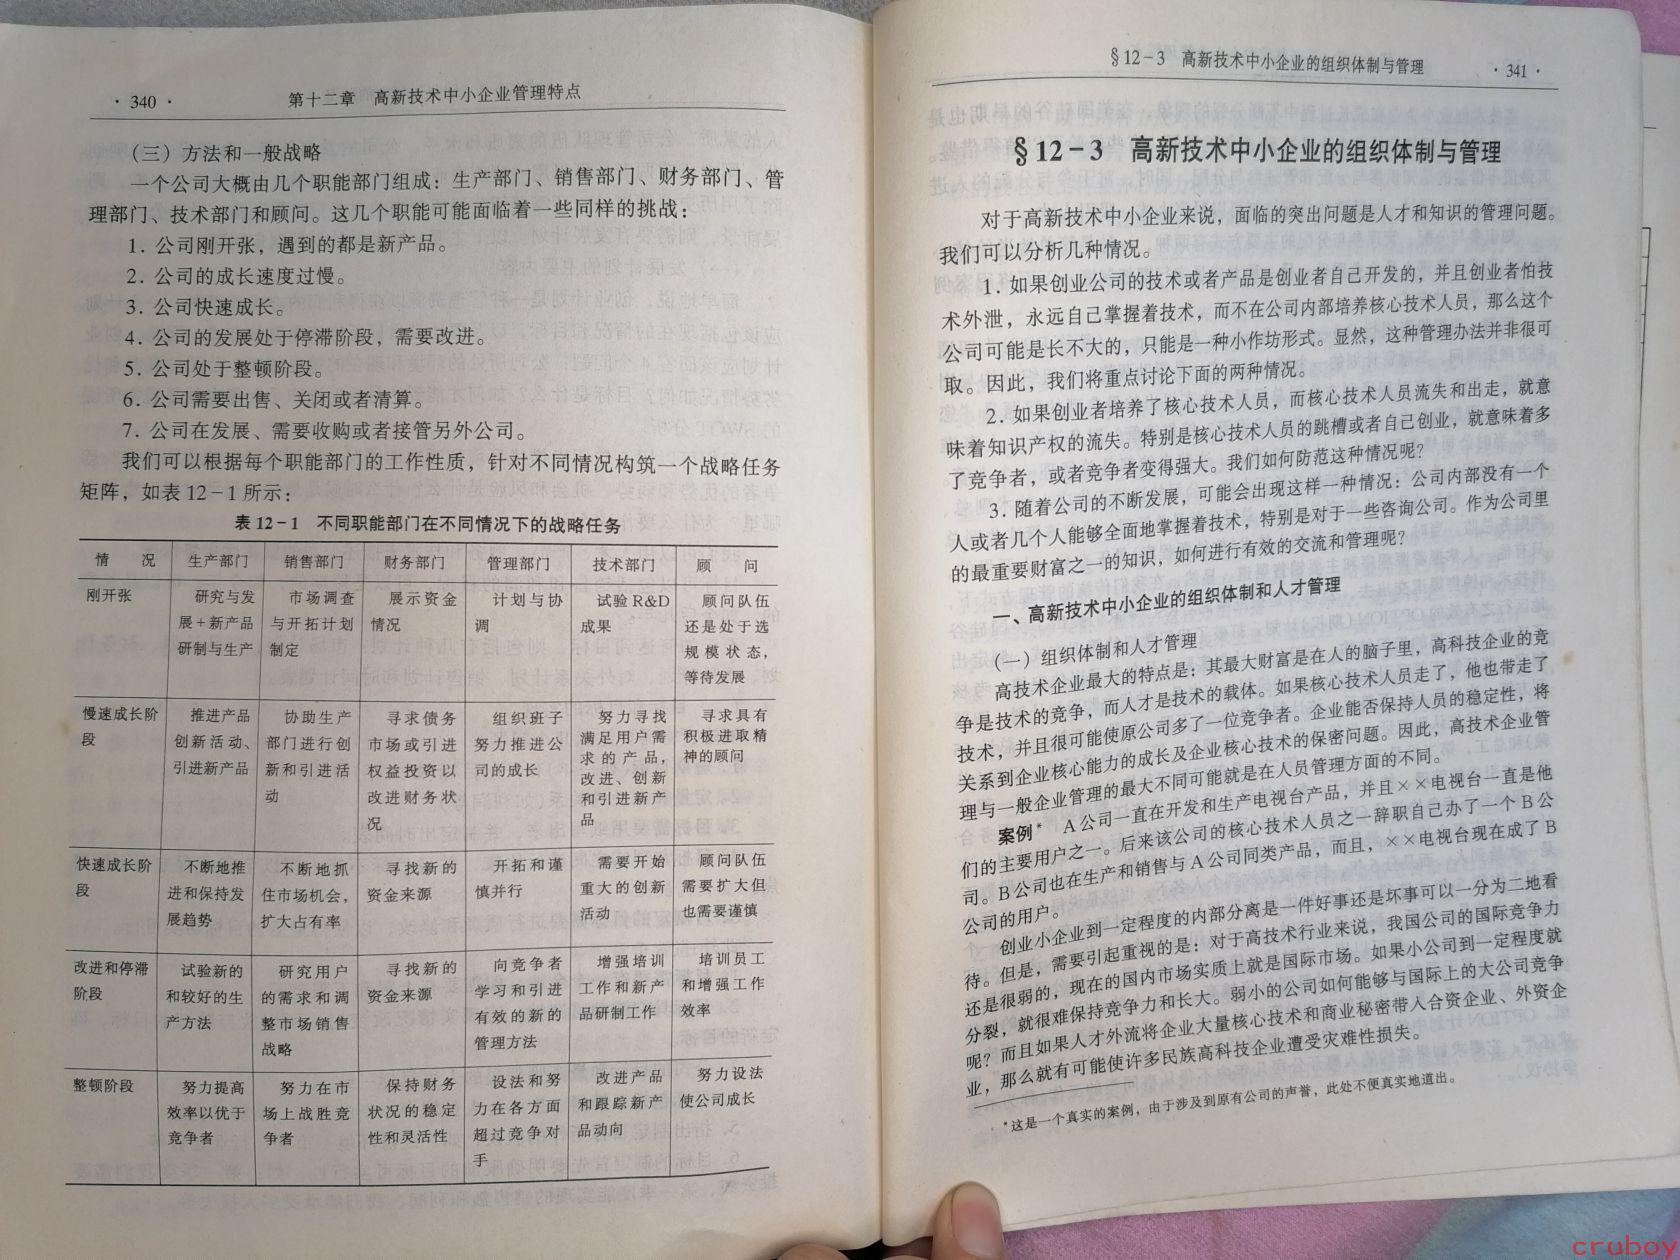 · 340 ·
第十二章 高新技术中小企业管理特点
(三) 方法和一般战略
一个公司大概由几个职能部门组成：生产部门、销售部门、财务部门、管
理部门、技术部门和顾问。这几个职能可能面临着一些同样的挑战：
1. 公司刚开张，遇到的都是新产品。
2. 公司的成长速度过慢。
3. 公司快速成长。
4. 公司的发展处于停滞阶段，需要改进。
5. 公司处于整顿阶段。
6. 公司需要出售、关闭或者清算。
7. 公司在发展、需要收购或者接管另外公司。
我们可以根据每个职能部门的工作性质，针对不同情况构筑一个战略任务
矩阵，如表 12－1 所示：
表 12－1 不同职能部门在不同情况下的战略任务
情 况 生产部门 销售部门 财务部门 管理部门 技术部门 顾 问
刚开张
研究与发
展＋新产品
研制与生产
市场调查
与开拓计划
制定
展示资金
情况
计划与协
调
试验 R&D
成果
顾问队伍
还是处于选
规模状态，
等待发展
慢速成长阶
段
推进产品
创新活动、
引进新产品
协助生产
部门进行创
新和引进活
动
寻求债务
市场或引进
权益投资以
改进财务状
况
组织班子
努力推进公
司的成长
努力寻找
满足用户需
求的产品，
改进、创新
和引进新产
品
寻求具有
积极进取精
神的顾问
快速成长阶
段
不断地推
进和保持发
展趋势
不断地抓
住市场机会，
扩大占有率
寻找新的
资金来源
开拓和谨
慎并行
需要开始
重大的创新
活动
顾问队伍
需要扩大但
也需要谨慎
改进和停滞
阶段
试验新的
和较好的生
产方法
研究用户
的需求和调
整市场销售
战略
寻找新的
资金来源
向竞争者
学习和引进
有效的新的
管理方法
增强培训
工作和新产
品研制工作
培训员工
和增强工作
效率
整顿阶段
努力提高
效率以优于
竞争者
努力在市
场上战胜竞
争者
保持财务
状况的稳定
性和灵活性
设法和努
力在各方面
超过竞争对
手
改进产品
和跟踪新产
品动向
努力设法
使公司成长
§12－3 高新技术中小企业的组织体制与管理
· 341 ·
§12－3 高新技术中小企业的组织体制与管理
对于高新技术中小企业来说，面临的突出问题是人才和知识的管理问题。
我们可以分析几种情况。
1. 如果创业公司的技术或者产品是创业者自己开发的，并且创业者怕技
术外泄，永远自己掌握着技术，而不在公司内部培养核心技术人员，那么这个
公司可能是长不大的，只能是一种小作坊形式。显然，这种管理办法并非很可
取。因此，我们将重点讨论下面的两种情况。
2. 如果创业者培养了核心技术人员，而核心技术人员流失和出走，就意
味着知识产权的流失。特别是核心技术人员的跳槽或者自己创业，就意味着多
了竞争者，或者竞争者变得强大。我们如何防范这种情况呢？
3. 随着公司的不断发展，可能会出现这样一种情况：公司内部没有一个
人或者几个人能够全面地掌握着技术，特别是对于一些咨询公司。作为公司里
的最重要财富之一的知识，如何进行有效的交流和管理呢？
一、高新技术中小企业的组织体制和人才管理
(一) 组织体制和人才管理
高技术企业最大的特点是：其最大财富是在人的脑子里，高科技企业的竞
争是技术的竞争，而人才是技术的载体。如果核心技术人员走了，他也带走了
技术，并且很可能使原公司多了一位竞争者。企业能否保持人员的稳定性，将
关系到企业核心能力的成长及企业核心技术的保密问题。因此，高技术企业管
理与一般企业管理的最大不同可能就是在人员管理方面的不同。
案例* A 公司一直在开发和生产电视台产品，并且××电视台一直是他
们的主要用户之一。后来该公司的核心技术人员之一辞职自己办了一个 B 公
司。B 公司也在生产和销售与 A 公司同类产品，而且，××电视台现在成了 B
公司的用户。
创业小企业到一定程度的内部分离是一件好事还是坏事可以一分为二地看
待。但是，需要引起重视的是：对于高技术行业来说，我国公司的国际竞争力
还是很弱的，现在的国内市场实质上就是国际市场。如果小公司到一定程度就
分裂，就很难保持竞争力和长大。弱小的公司如何能够与国际上的大公司竞争
呢？而且如果人才外流将企业大量核心技术和商业秘密带入合资企业、外资企
业，那么就有可能使许多民族高科技企业遭受灾难性损失。
*这是一个真实的案例，由于涉及到原有公司的声誉，此处不便真实地道出。
cruboy